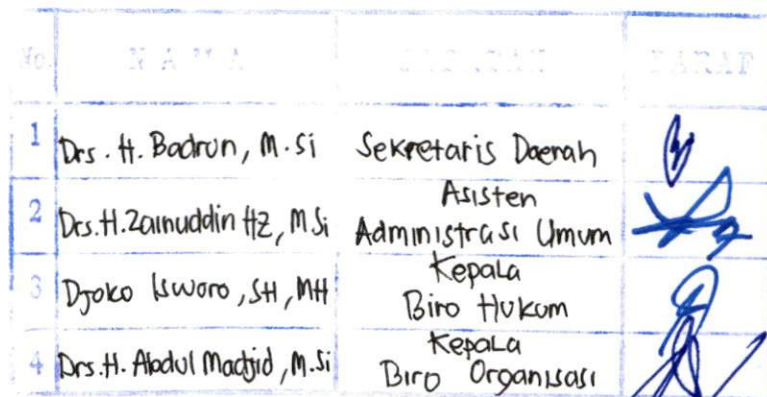 No. NAMA JABATAN PARAF
1 Drs. H. Badrun, M.Si Sekretaris Daerah
2 Drs.H.Zainuddin HZ, M Si Asisten
Administrasi Umum
3 Djoko Isworo, SH, MH Kepala
Biro Hukum
4 Drs.H. Abdul Madjid, M.Si Kepala
Biro Organisasi